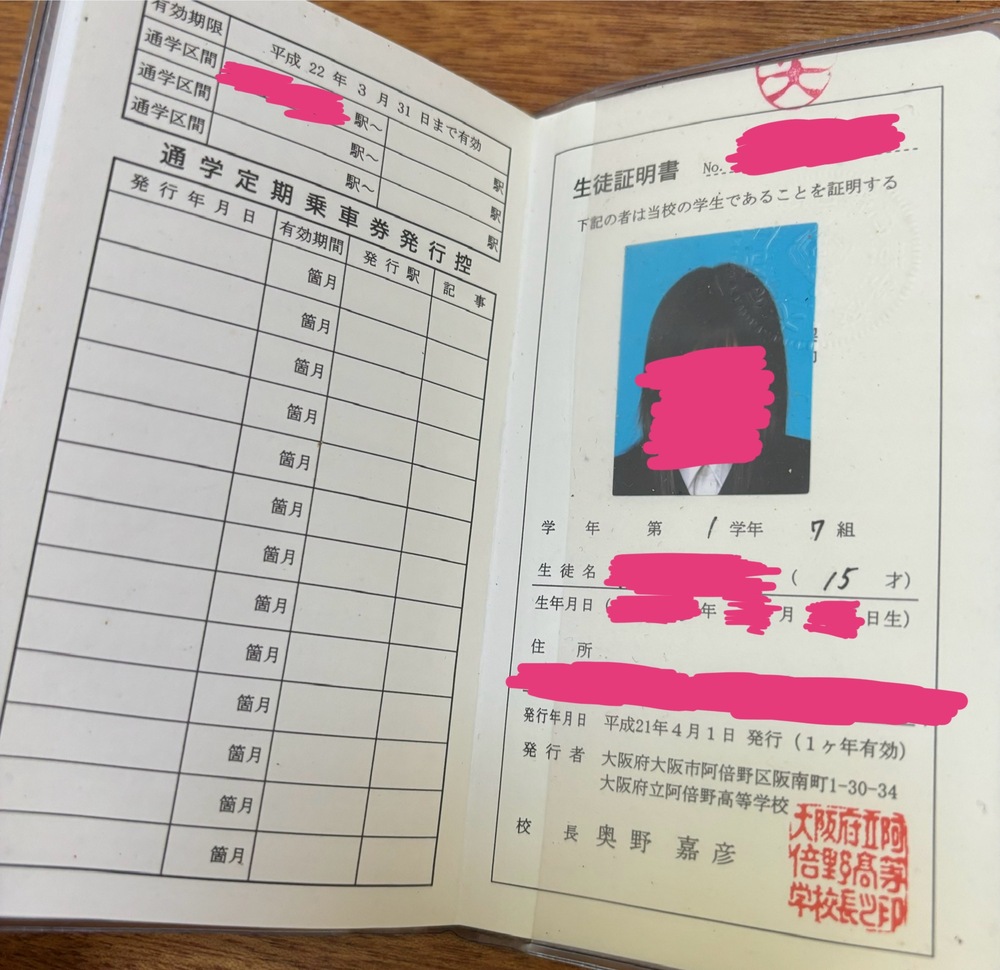 有効期限 平成 22 年 3 月 31 日まで有効
通学区間 駅～ 駅
通学区間 駅～ 駅
通学区間 駅～ 駅
通学定期乗車券発行控
発行年月日 有効期間 発行駅 記事
箇月
箇月
箇月
箇月
箇月
箇月
箇月
箇月
箇月
箇月
箇月
箇月
箇月
大
生徒証明書 No.
下記の者は当校の学生であることを証明する
学年 第 1 学年 7 組
生徒名 ( 15 才)
生年月日 ( 年 月 日生)
住所
発行年月日 平成21年4月1日 発行 (1ヶ年有効)
発行者 大阪府大阪市阿倍野区阪南町1-30-34
大阪府立阿倍野高等学校
校長 奥野 嘉彦
大阪府立阿
倍野高等
学校長之印